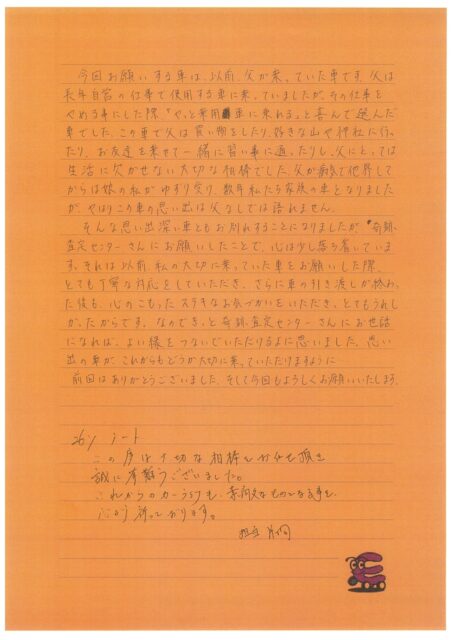 今回お願いする車は、以前、父が乗っていた車です。父は
長年自営の仕事で使用する車に乗っていましたが、その仕事を
やめる事にした際、「やっと乗用車に乗れる。」と喜んで選んだ
車でした。この車で父は買い物をしたり、好きな山や神社に行っ
たり、お友達を乗せて一緒に習い事に通ったりし、父にとっては
生活に欠かせない大切な相棒でした。父が病気で他界して
からは娘の私がゆずり受け、数年私たち家族の車となりました
が、やはりこの車の思い出は父なしでは語れません。
そんな思い出深い車ともお別れすることになりましたが、
査定センターさんにお願いしたことで、心は少し落ち着いていま
す。それは以前、私の大切に乗っていた車をお願いした際、
とても丁寧な対応をしていただき、さらに車の引き渡しが終わっ
た後も、心のこもったステキなお気づかいをいただき、とてもうれし
かったからです。なので、きっと査定センターさんにお世話
になれば、よい縁をつないでいただけるように思いました。思い
出の車が、これからもどうか大切に乗っていただけますように
前回はありがとうございました。そして今回もよろしくお願いいたします。
ノート
この度は大切な相棒を
誠に有難うございました。
これからのカーライフも、素敵なものとなる事を
心から祈っております。
担当